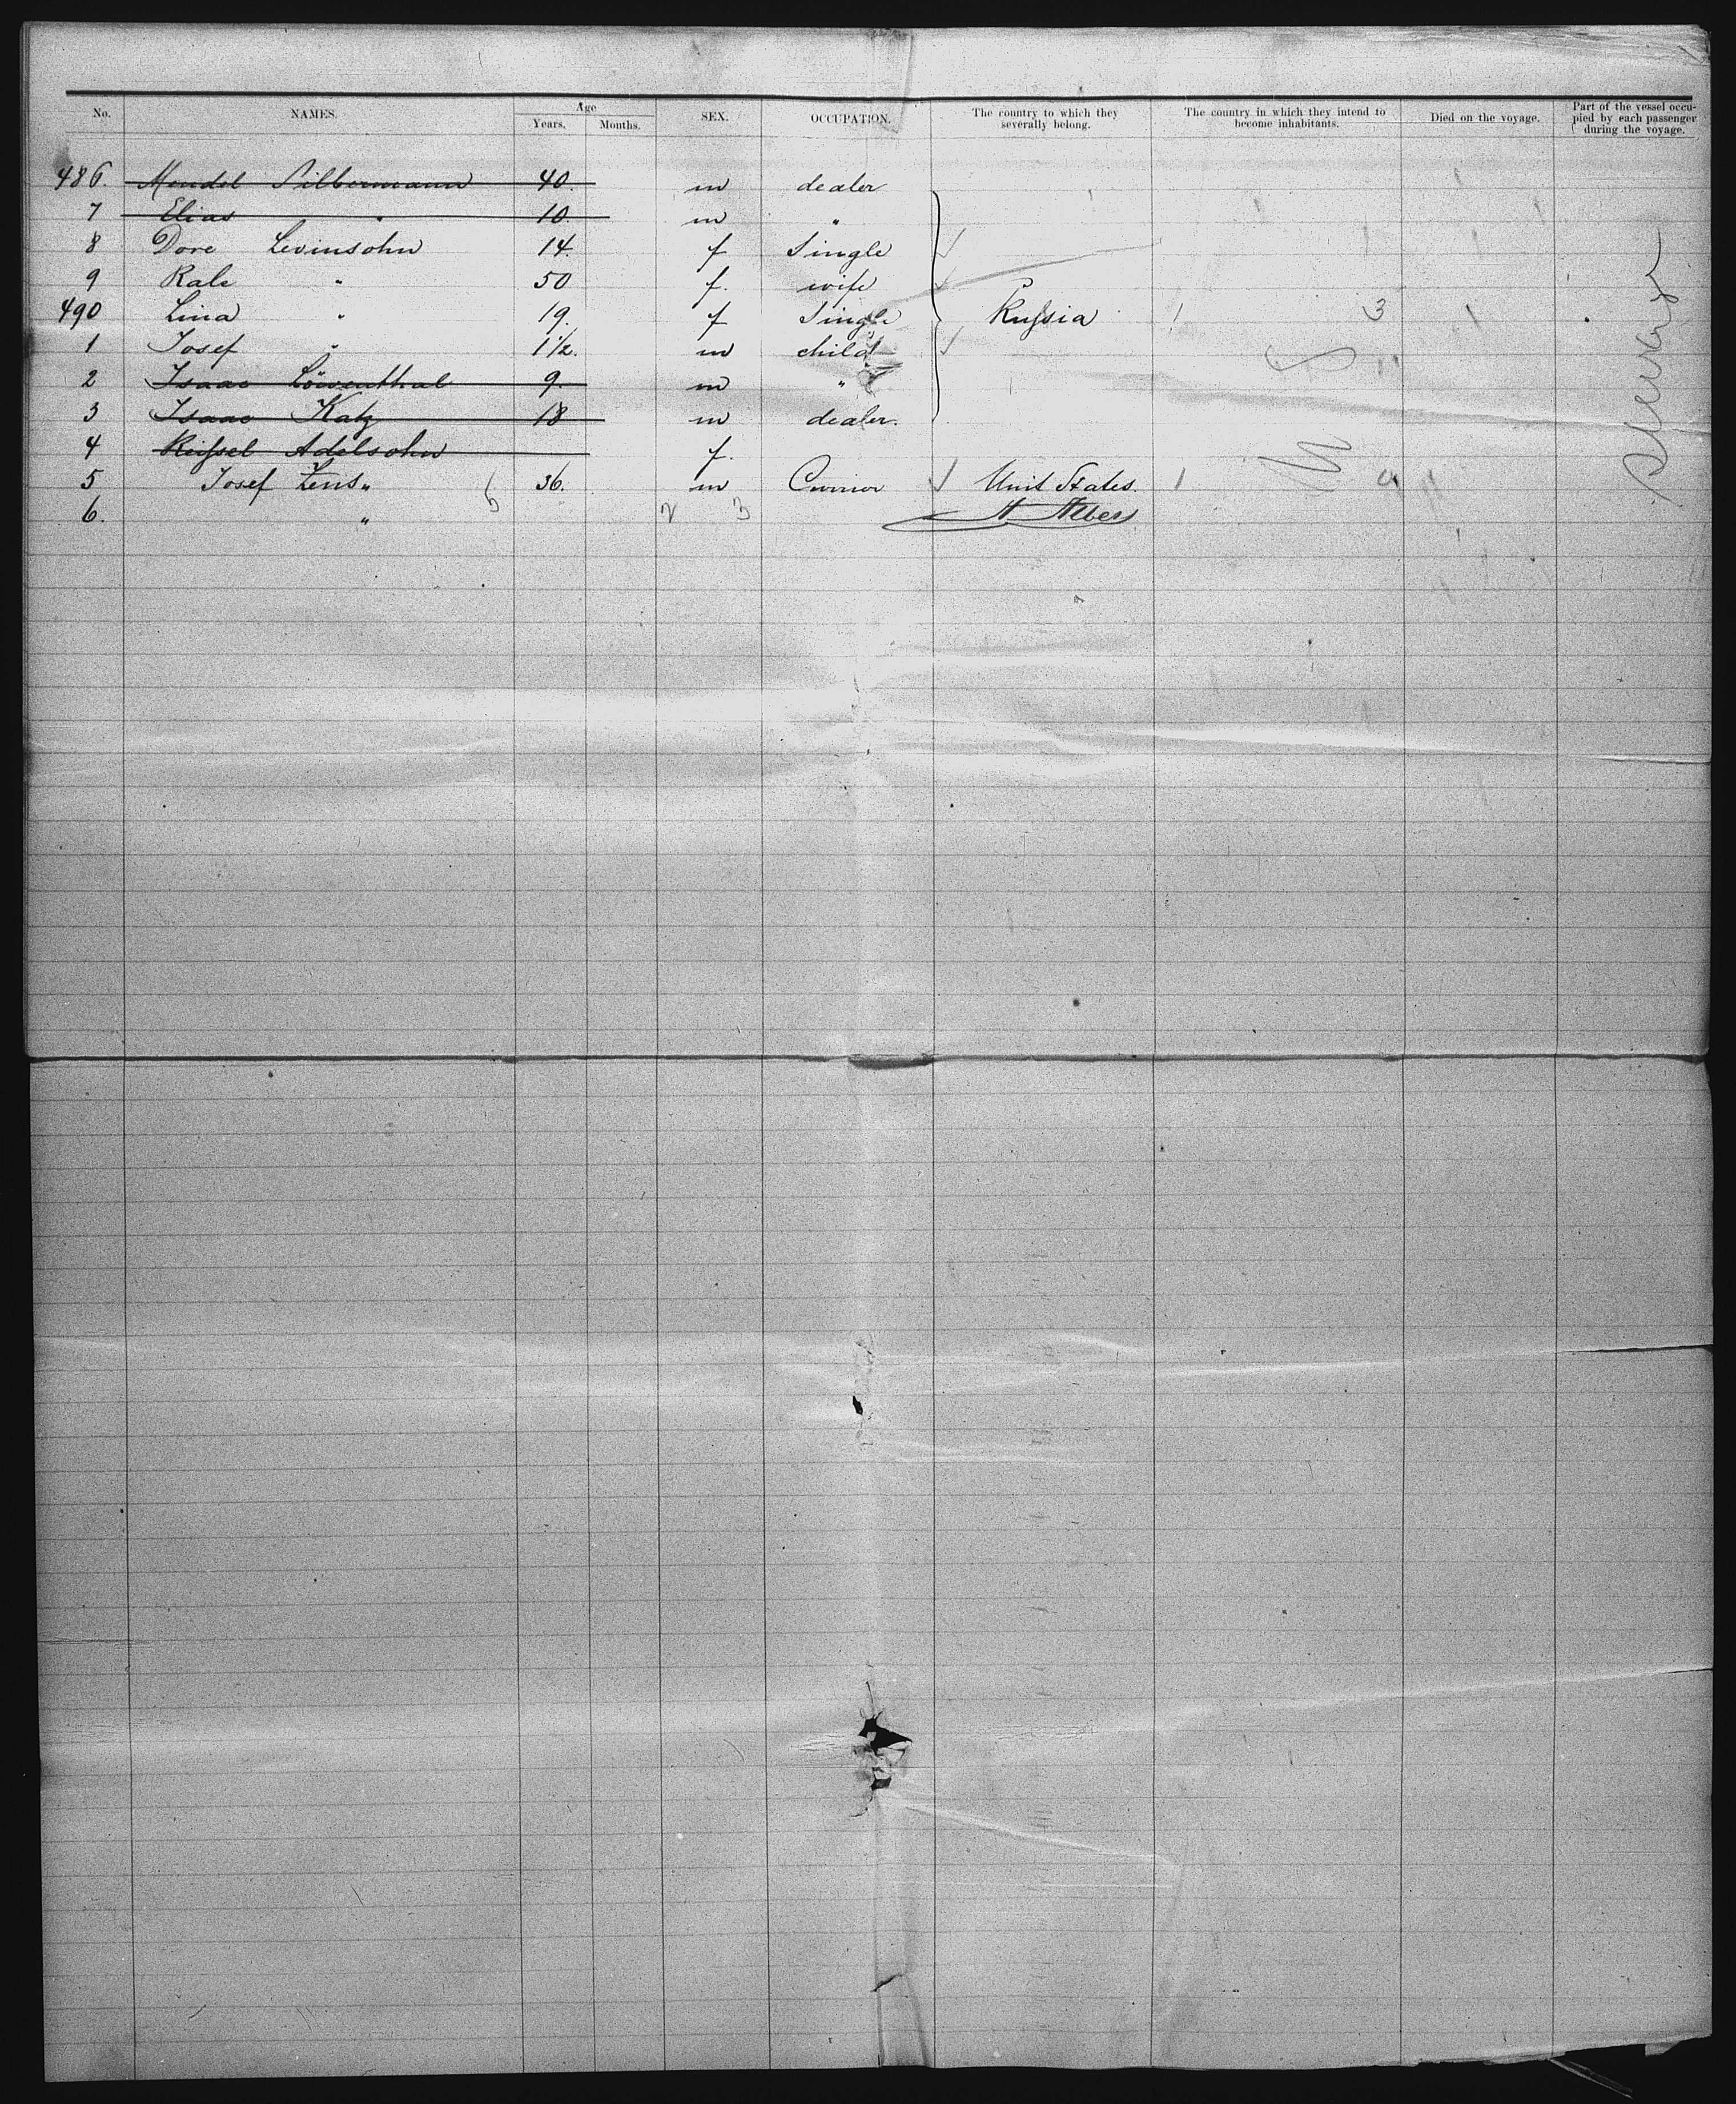 No. NAMES. Age Years. Months. SEX. OCCUPATION. The country to which they severally belong. The country in which they intend to become inhabitants. Died on the voyage. Part of the vessel occupied by each passenger during the voyage.
486. Mendel Silbermann 40. m dealer
7 Elias " 10. m "
8 Dore Levinsohn 14. f Single
9 Rale " 50 f. wife
490 Lina " 19. f Single Russia 3
1 Josef " 1 1/2. m child
2 Isaac Löwenthal 9. m "
3 Isaac Katz 18 m dealer.
4 Reissel Adelsohn f.
5 Josef Lens " 36. m Unit States.
6. " A Albers